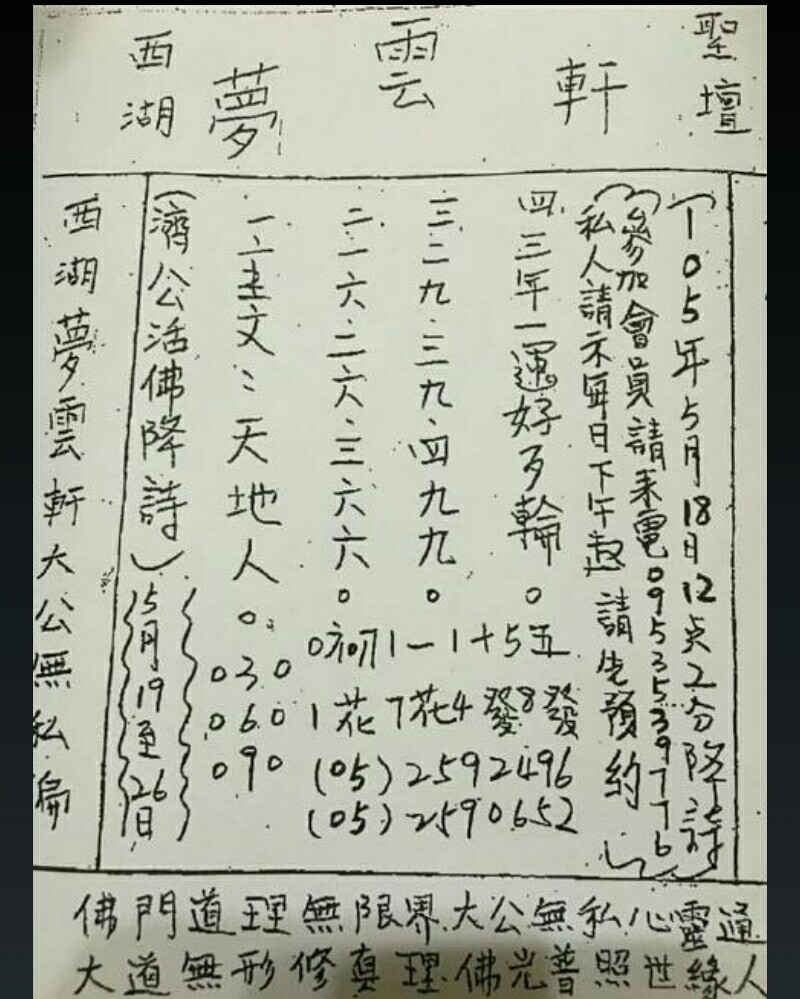 聖壇
軒
雲
夢
西湖
(105年5月18日12点2分降詩)
(參加會員請來電0953539776)
私人請示每日下午起請先預約
四.三年一運好歹輪。
三.二九.三九.四九九。
二.一六.二六.三六六。
一.二主文:天地人。
(濟公活佛降詩)
5月19至26日
030
060
090
0初1一1十5五
1花7花4發8發
(05)2592496
(05)2590652
西湖夢雲軒大公無私偏
佛門道理無限界大公無私心靈通
大道無形修真理佛光普照世緣人